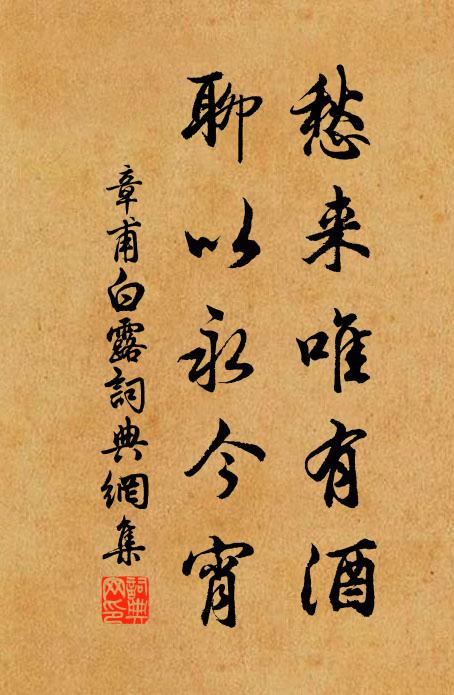 愁来唯有酒
聊以永今宵
章甫白露詞典網集
詞典网印